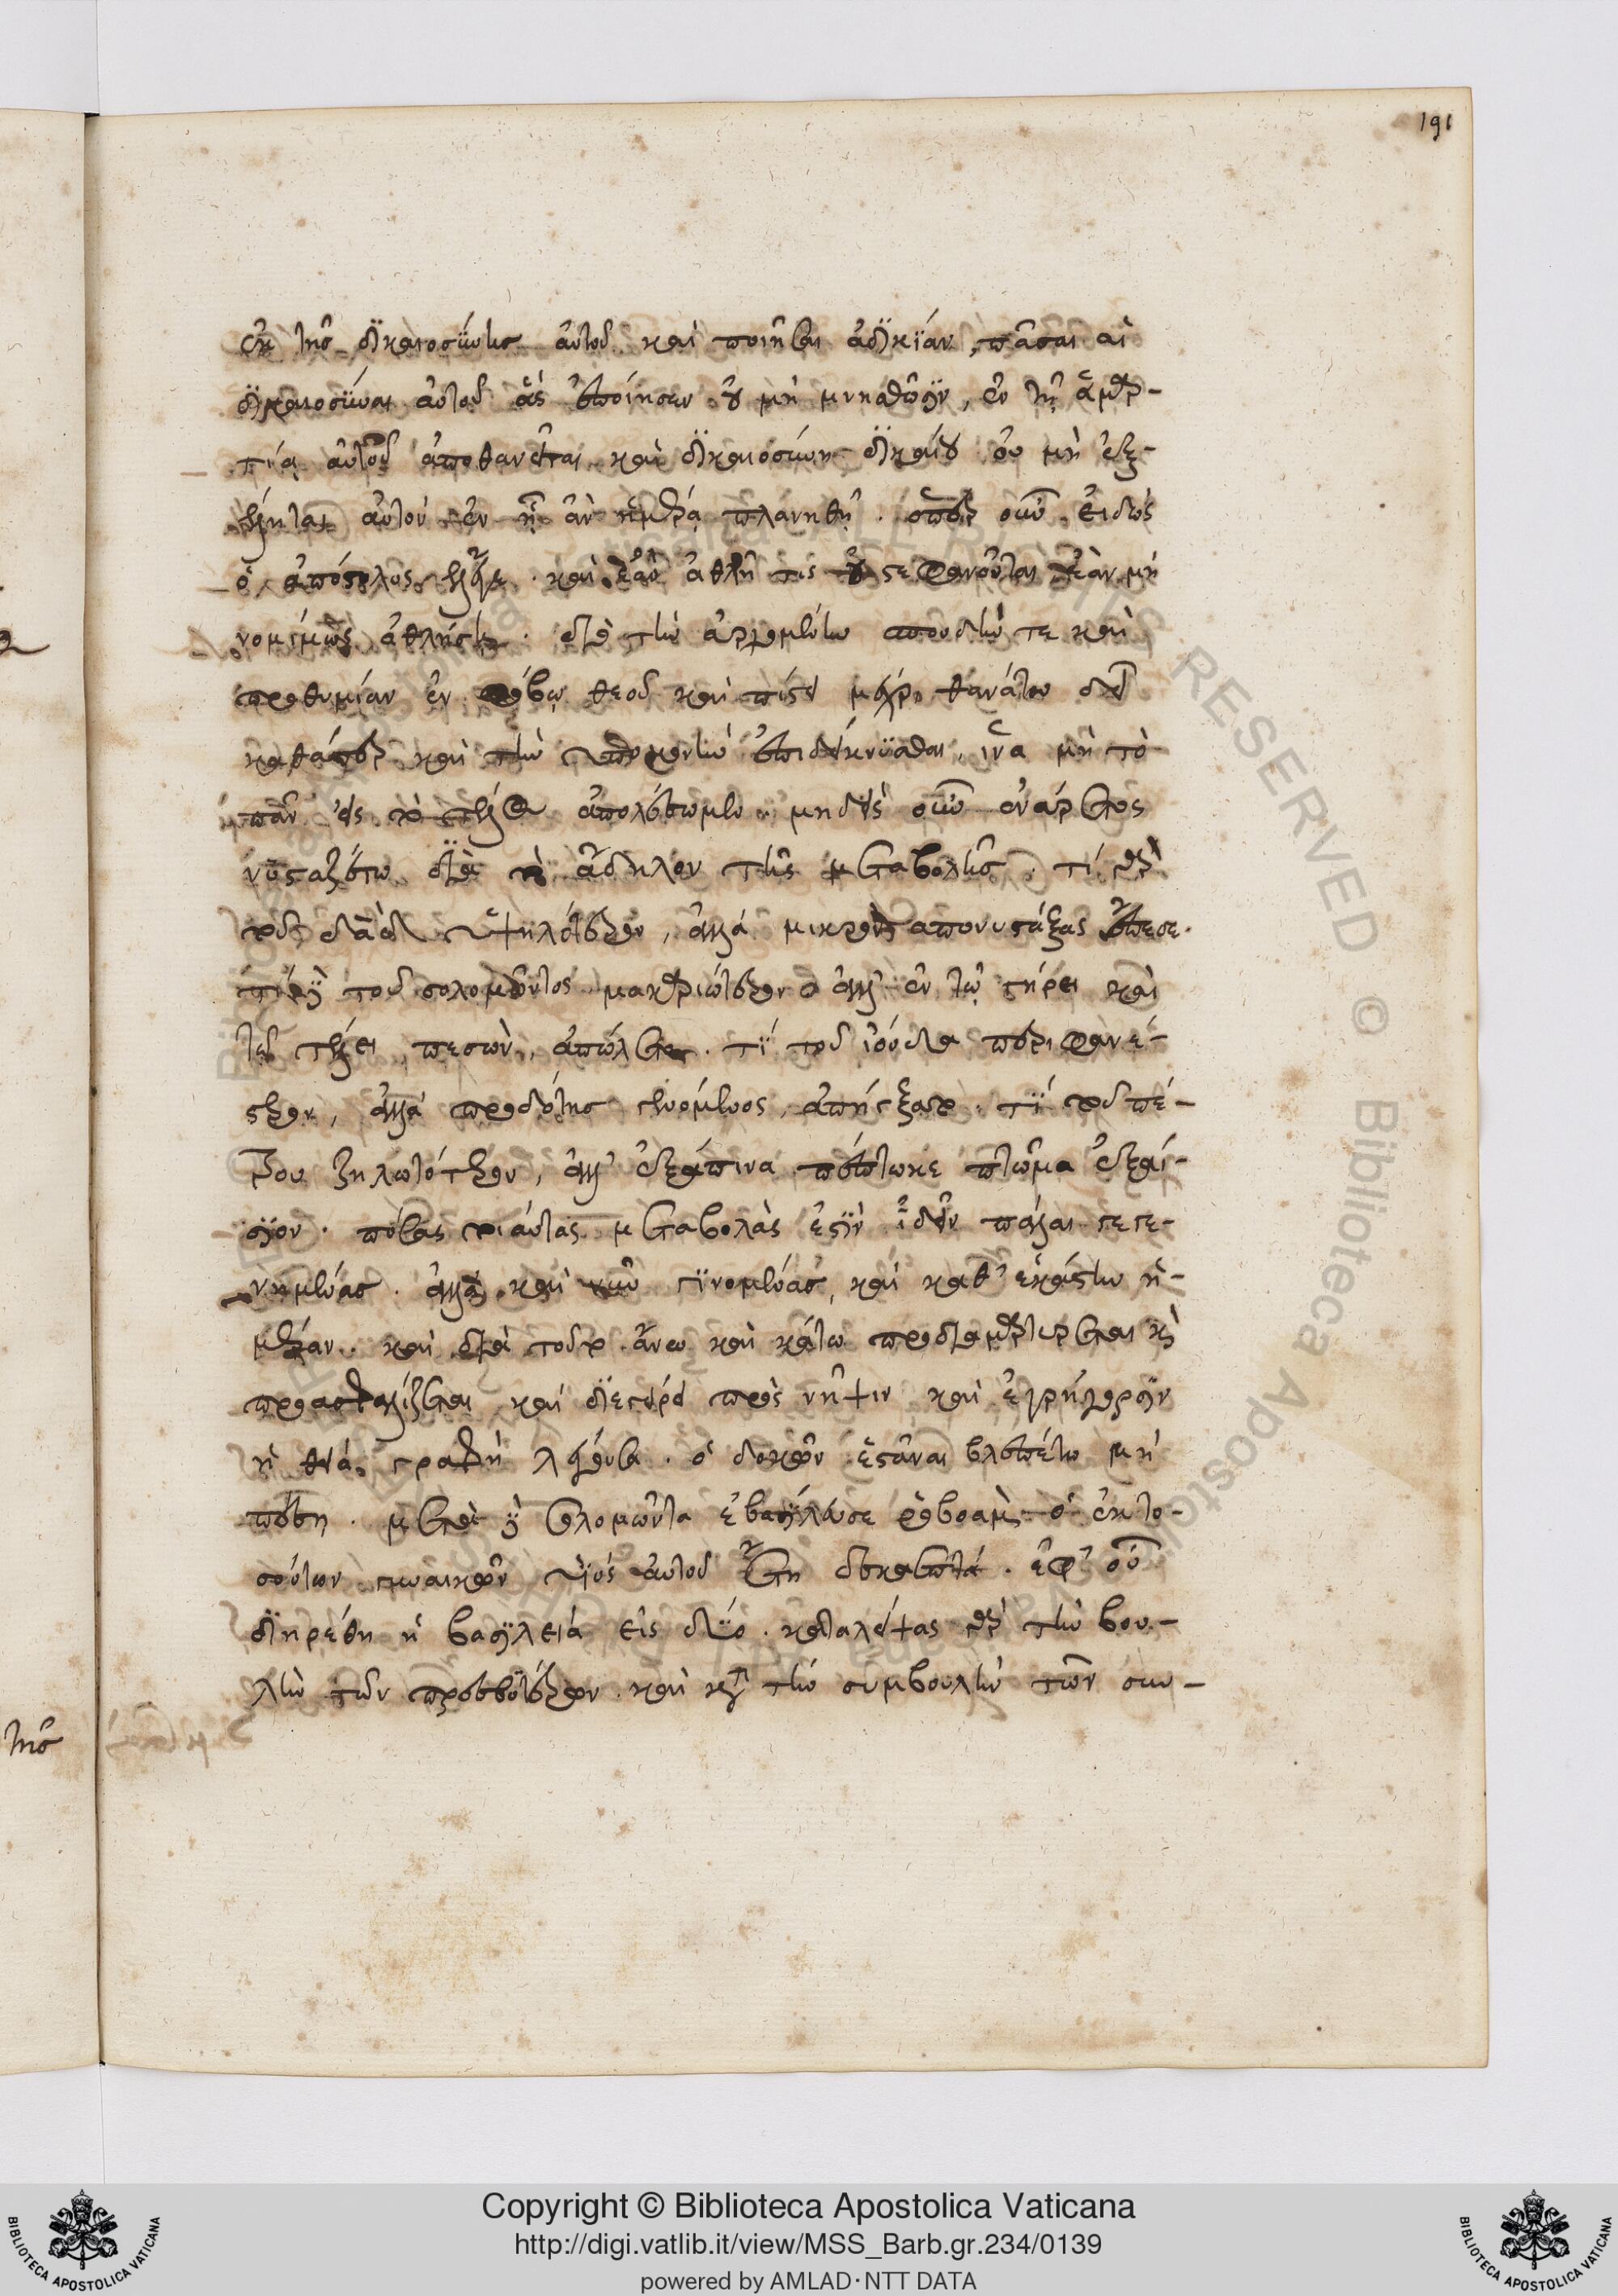 191
ἐκ τῆς δικαιοσύνης αὐτοῦ καὶ ποιῆσαι ἀδικίαν, πᾶσαι αἱ
δικαιοσύναι αὐτοῦ ἃς ἐποίησεν οὐ μὴ μνησθῶσιν, ἐν τῇ ἁμαρ-
τίᾳ αὐτοῦ ἀποθανεῖται καὶ δικαιοσύνη δικαίου οὐ μὴ ἐξε-
λῆται αὐτὸν ἐν ᾗ ἂν ἡμέρᾳ πλανηθῇ. ὅπερ οὖν εἰδὼς
ὁ ἀπόστολος ἔλεγε. καὶ ἐὰν ἀθλῇ τις οὐ στεφανοῦται ἐὰν μὴ
νομίμως ἀθλήσῃ. διὸ τὴν ἀρχομένην σπουδήν τε καὶ
προθυμίαν ἐν φόβῳ θεοῦ καὶ πίστει μέχρι θανάτου δεῖ
καθάπερ καὶ τὴν ὑπομονὴν ἐπιδείκνυσθαι, ἵνα μὴ τὸ
πᾶν εἰς τὸ τέλος ἀπολέσωμεν. μηδεὶς οὖν ἐνάρετος
νυσταζέτω διὰ τὸ ἄδηλον τῆς μεταβολῆς. τί γὰρ
τοῦ δαδ ὑψηλότερον, ἀλλὰ μικρὸν ἀπονυστάξας ἔπεσε.
τί δὲ τοῦ σολομῶντος μακαριώτερον ἀλλ' ἐν τῷ γήρει καὶ
τῷ τέλει πεσὼν, ἀπώλετο. τί τοῦ ἰούδα περιφανέ-
στερον, ἀλλὰ προδότης γενόμενος, ἀπήγξατο. τί τοῦ πέ-
τρου ζηλωτότερον, ἀλλ' ἐξάπινα πέπτωκε πτῶμα ἐξαί-
σιον. πόσας τοιαύτας μεταβολὰς ἐστὶν ἰδεῖν πάλαι γεγε-
νημένας. ἀλλὰ καὶ νῦν γινομένας, καὶ καθ' ἑκάστην ἡ-
μέραν. καὶ διὰ τοῦτο ἄνω καὶ κάτω προδιαμαρτύρεται κ
προασφαλίζεται καὶ διεγείρει πρὸς νῆψιν καὶ ἐγρήγορσιν
ἡ θεία γραφὴ λέγουσα. ὁ δοκῶν ἑστᾶναι βλεπέτω μὴ
πέσῃ. μετὰ δὲ σολομῶντα ἐβασίλευσε ῥοβοὰμ ὁ ἐκ το-
σούτων γυναικῶν υἱὸς αὐτοῦ ἔτη δεκαεπτά. ἐφ' οὗ
διῃρέθη ἡ βασιλεία εἰς δύο. καταλείψας γὰρ τὴν βου-
λὴν τῶν πρεσβυτέρων καὶ κατὰ τὴν συμβουλὴν τῶν συν-
Copyright © Biblioteca Apostolica Vaticana
http://digi.vatlib.it/view/MSS_Barb.gr.234/0139
powered by AMLAD·NTT DATA